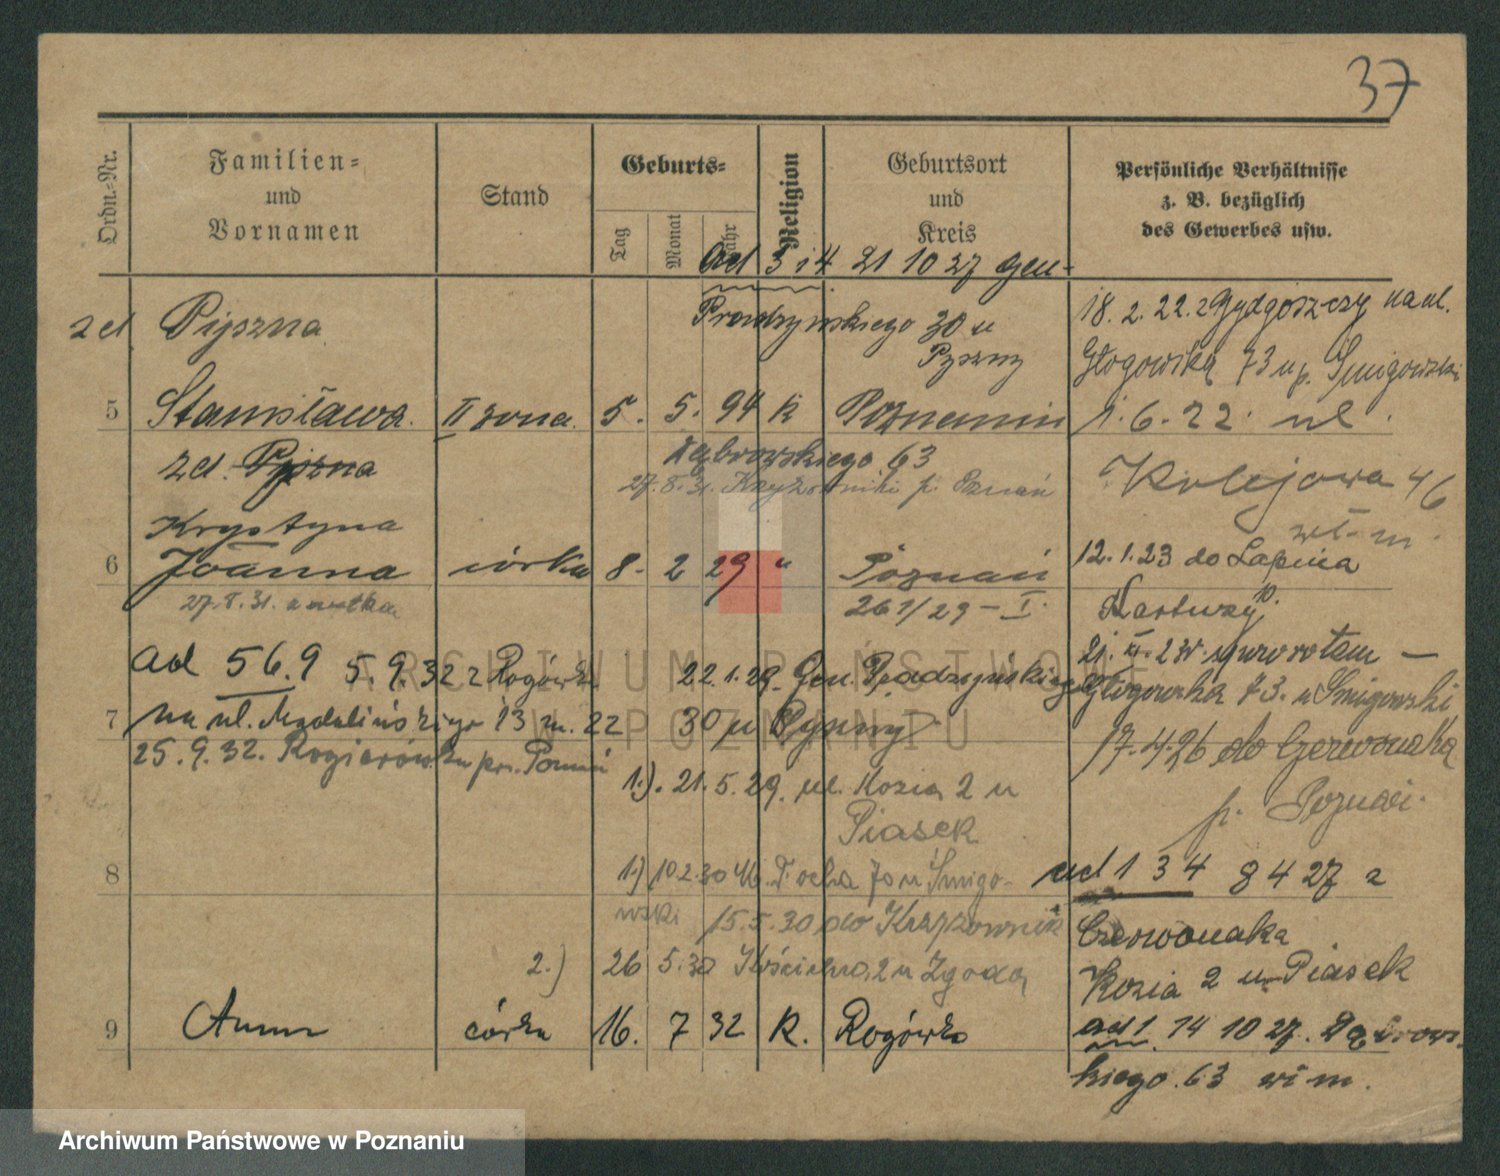 37
Ordn.-Nr.
Familien-
und
Vornamen
Stand
Geburts-
Tag
Monat
Jahr
Religion
Geburtsort
und
Kreis
Persönliche Verhältnisse
z. B. bezüglich
des Gewerbes usw.
ad 3 i 4 21 10 27 Gen-
Prondzynskiego 30 u
Pyszny
zd Pyszna
5 Stanisława. II żona. 5. 5. 94 k Poznaniu
zd. Pyszna
Dąbrowskiego 63
27.8.31. Krzyżowniki p. Poznań
Krystyna
6 Joanna córka 8. 2 29 " Poznań
27.8.31. z matką
261/29 – I.
ad 5 6. 9 5.9.32 z Rogówka
7 na ul. Madalińskiego 13 m. 22
25.9.32. Rogierówka pow. Poznań
22.1.29. Gen. Prądzyńskiego
30 u Pyszny
1.). 21.5.29. ul. Kozia 2 u
Piasek
8
1.) 10.2.30 M. Focha 70 u Śmigo-
wski 15.5.30 do Krzyżownik
2.) 26 5.30 Kościelna 2 u Zgoda
9 Anna córka 16. 7 32 k. Rogówko
18. 2. 22. z Bydgoszczy na ul.
Głogowską 73 u p. Śmigowski
1. 6. 22. ul.
Kolejowa 46
wł. m.
12.1.23 do Łapina
Kartuzy
21. 23. z powrotem —
Głogowska 73. u Śmigowski
17.4.26 do Czerwonaka
p. Poznań.
ad 1 3 4 8 4 27 z
Czerwonaka
Kozia 2 u Piasek
ad 1. 14 10 27. Dąbrows-
kiego 63 wł m.
ARCHIWUM PAŃSTWOWE
W POZNANIU
Archiwum Państwowe w Poznaniu